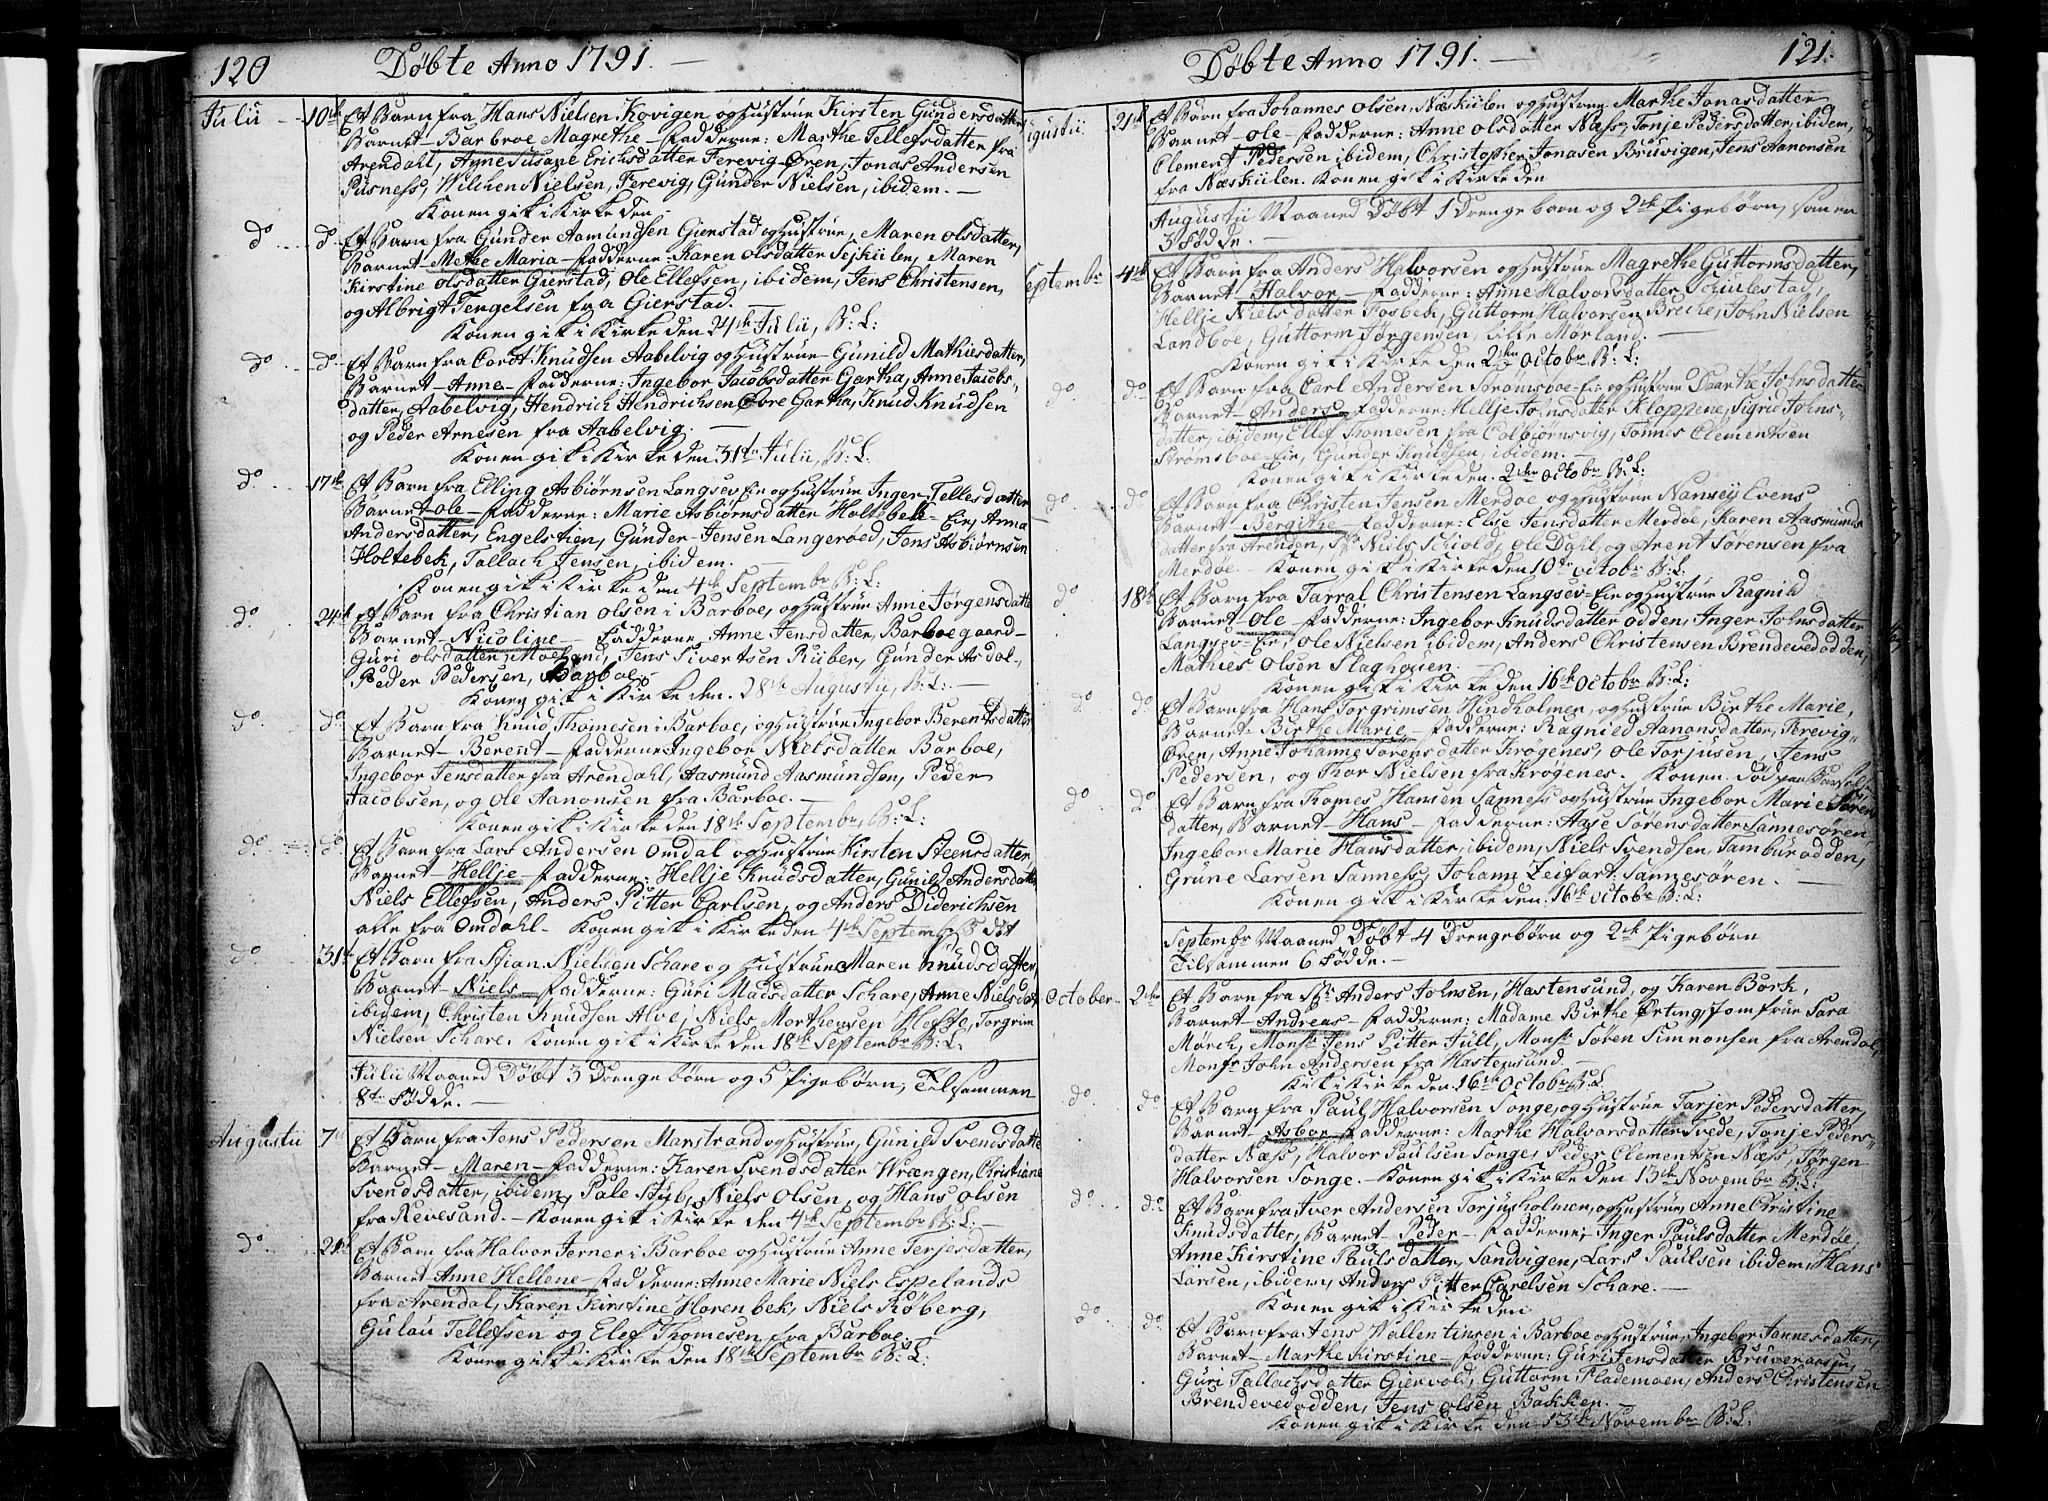 120
Døbte Anno 1791.
Julii 10de Et Barn fra Hans Nielsen Kovigen og Hustrue Kirsten Gundersdatter,
Barnet Barbroe Magrethe fadderne: Marthe Tellefsdatter fra
Arendahl, Susane Erichsdatter Ferevig Øren, Jonas Andersen
Pusness, Wilchen Nielsen, Ferevig, Gunder Nielsen, ibidem.
Konen gik i Kirke den
do do Et Barn fra Gunder Aamundsen Gierstad og Hustrue, Maren Olsdatter,
Barnet Methe Maria fadderne: Karen Olsdatter Maren
Kirstine Olsdatter Gierstad, Ole Ellefsen, ibidem, Jens Christensen,
og Albrigt Tengelsen fra Gierstad.
Konen gik i Kirke den 24de Julii, B: L:
do do Et Barn fra Cordt Knudsen Aabelvig og Hustrue Gunild Mathiesdatter,
Barnet Anne fadderne: Ingebor Jacobsdatter Gartha, Anne Jacobs-
datter, Aabelvig, Hendrich Hendrichsen Gartha, Knud Knudsen
og Peder Arnesen fra Aabelvig.
Konen gik i Kirke den 31te Julii, B: L:
do 17de Et Barn fra Elling Asbiørnsen Langsev Eie og Hustrue Inger Tellesdatter
Barnet Ole fadderne: Marie Asbiørnsdatter Holtebek Eie, Anna
Andersdatter, Engelstien, Gunder Jensen Langerøed, Jens Asbiørnsen
Holtebek, Tallach Jensen, ibidem.
Konen gik i Kirke den 4de Septembr B: L:
do 24de Et Barn fra Christian Olsen i Barboe, og Hustrue Anne Jørgensdatter
Barnet Nicoline Fadderne, Anne Jensdatter, Barboegaard
Guri Olsdatter, Moeland, Jens Sivertsen Ruber, Gunder Asdal,
Peder Pedersen, Barboe.
Konen gik i Kirke den 28de Augustii, B: L:
do do Et Barn fra Knud Thomesen i Barboe, og Hustrue Ingebor Berentsdatter
Barnet Berennt fadderne Ingebor Nielsdatter Barboe,
Ingebor Jensdatter fra Arendahl, Aasmund Aasmundsen, Peder
Jacobsen, og Ole Aanonsen fra Barboe.
Konen gik i Kirke den 18de Septembr, B: L:
do do Et Barn fra Lars Andersen Omdal og Hustrue Kirsten Steensdatter
Barnet Hellje fadderne: Hellje Knudsdatter, Gunild Andersdatter
Niels Ellefsen, Anders Pitter Carlsen, og Anders Diderichsen
alle fra Omdahl Konen gik i Kirke den 4de Septembr
do 31te Et Barn fra Stian Nielsen Schare og Hustrue Maren Knudsdatter,
Barnet Niels fadderne: Guri Madsdatter Schare, Anne Nielsdat
ibidem, Christen Knudsen Alve, Niels Morthensen Hefte, Torgrim
Nielsen Schare. Konen gik i Kirke den 18de Septembr B: L:
Julii Maaned Døbt 3 Drengebørn og 5 Pigebørn, Tilsammen
8te Fødde.
Augustii 7de Et Barn fra Jens Pedersen Marstrand og Hustrue, Gunild Svendsdatte
Barnet Maren fadderne: Karen Svendsdatter Wrængen, Christiane
Svendsdatter, ibidem, Pale Stub, Niels Olsen, og Hans Olsen
fra Revesand. Konen gik i Kirke den 4de Septembr B: L:
do 21de Et Barn fra Halvor Jerner i Barboe og Hustrue Anne Terjesdatter,
Barnet Anne Hellene fadderne: Anne Marie Niels Espelands
fra Arendal, Karen Kirstine Horenbek, Niels Røberg,
Gulau Tellefsen og Elef Thomesen fra Barboe.
Konen gik i Kirke den 18de Septembr B: L:
Døbte Anno 1791.
121.
gustii 21de Et Barn fra Johannes Olsen, Næskiilen og Hustrue Marthe Jonasdatter
Barnet Ole fadderne: Anne Olsdatter Næss, Tonje Pedersdatter, ibidem,
Clement Pedersen ibidem, Christopher Jonasen Bruvigen, Jens Aanonsen
fra Næskiilen. Konen gik i Kirke den
Augustii Maaned Døbt 1 Drengebarn og 2de Pigebørn, samen
3 Fødde.
Septembr 4de Et Barn fra Anders Halvorsen og Hustrue Magrethe Guttormsdatter,
Barnet Halvor fadderne: Anne Halvorsdatter, Schulestad,
Hellje Nielsdatter Fosbek, Guttorm Halvorsen Breche, John Nielsen
Landboe, Guttorm Jørgensen, lille Mørland.
Konen gik i Kirke den 2den Octobr B: L:
do do Et Barn fra Carl Andersen Strømsboe Eie og Hustrue Daarthe Johnsdatter
Barnet Anders fadderne: Hellje Johnsdatter Kloppene, Sigrid Johns-
datter, ibidem, Ellef Thomesen fra Colbiørnsvig, Tønnes Clementsen
Strømsboe Eie, Gunder Knudsen, ibidem.
Konen gik i Kirke den 2den Octobr B: L:
do do Et Barn fra Christen Jensen Merdøe og Hustrue Nansey Evens
Barnet Bergithe fadderne: Elsje Jensdatter Merdøe, Karen Aasmunds
datter fra Arenden, Sr Niels Schiold, Ole Dahl, og Arent Sørensen fra
Merdøe. Konen gik i Kirke den 10de Octobr B: L:
do 18de Et Barn fra Tarral Christensen Langsev Eie og Hustrue Ragnild
Barnet Ole fadderne: Ingebor Knudsdatter Odden, Inger Johnsdatter
Langsev Eie, Ole Nielsen ibidem, Anders Christensen Brendevedodden,
Mathies Olsen Slaghouen.
Konen gik i Kirke den 16de Octobr B: L:
do do Et Barn fra Hans Torgrimsen Hindholmen, og Hustrue Birthe Marie,
Barnet Birthe Marie fadderne: Ragnied Aanonsdatter, Ferevig-
Øren, Anne Johanne Sørensdatter Krogenes, Ole Torjusen, Jens
Pedersen, og Thor Nielsen fra Krøgenes. Konen død paa Barsel
do do Et Barn fra Thomes Hansen Sanness og Hustrue Ingebor Marie Søren
datter, Barnet Hans fadderne: Aase Sørensdatter Sannesøren,
Ingebor Marie Hansdatter, ibidem, Niels Svendsen, Tamburodden,
Grune Larsen Sanness, Johann Zeifart: Sannesøren.
Konen gik i Kirke den 16de Octobr B: L:
Septembr Maaned Døbt 4 Drengebørn og 2de Pigebørn
Tilsammen 6 Fødde.
October 2den Et Barn, fra Sr Anders Johnsen, Hastensund, og Karen Bork,
Barnet Andreas fadderne: Madame Birthe Ørting, Jomfrue Sara
Mørch, Monsr Jens Pitter Jull, Monsr Søren Simnonsen fra Arendal,
Monsr John Andersen fra Hastensund.
Gik i Kirke den 16de Octobr B: L
do do Et Barn fra Paul Halvorsen Songe, og Hustrue Tarjer Pedersdatter,
Barnet Asbor fadderne: Marthe Halvorsdatter Svede, Tonje Peders-
datter Næss, Halvor Paulsen Songe, Peder Clementsen Næss, Jørgen
Halvorsen Songe. Konen gik i Kirke den 13de Novembr B: L:
do do Et Barn fra Iver Andersen Torjusholmen, og Hustrue, Anne Christine
Knudsdatter, Barnet Peder fadderne, Inger Paulsdatter Merdøe,
Anne Kirstine Paulsdatter, Sandvigen, Lars Paulsen ibidem, Hans
Larsen, ibidem, Anders Pitter Carelsen Schare.
Konen gik i Kirke den
do do Et Barn fra Jens Wallentinsen i Barboe og Hustrue, Ingebor Jannesdatter,
Barnet Marthe Kirstine fadderne: Guri Jensdatter Bruveraasen,
Guri Tallachsdatter Giervold, Guttorm Flademoen, Anders Christensen
Brendevedodden, Jens Olsen Bakken.
Konen gik i Kirke den 13de Novembr B: L: